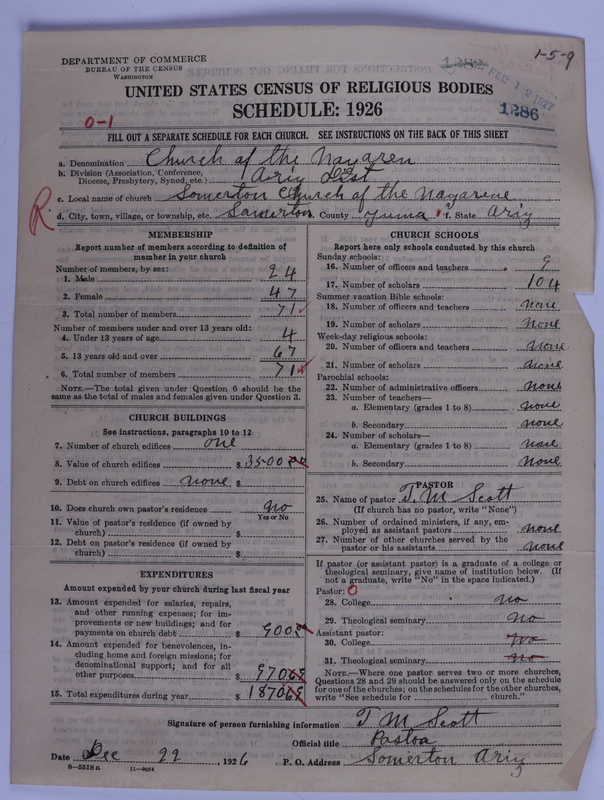 DEPARTMENT OF COMMERCE
BUREAU OF THE CENSUS
WASHINGTON
1-5-9
FEB 12 1927
1286
UNITED STATES CENSUS OF RELIGIOUS BODIES
SCHEDULE: 1926
0-1
FILL OUT A SEPARATE SCHEDULE FOR EACH CHURCH. SEE INSTRUCTIONS ON THE BACK OF THIS SHEET
a. Denomination Church of the Nazaren
b. Division (Association, Conference, Diocese, Presbytery, Synod, etc.) Ariz Dist
c. Local name of church Somerton Church of the Nazarene
R.
d. City, town, village, or township, etc. Somerton e. County Yuma f. State Ariz
MEMBERSHIP
Report number of members according to definition of
member in your church
Number of members, by sex:
1. Male 24
2. Female 47
3. Total number of members 71
Number of members under and over 13 years old:
4. Under 13 years of age 4
5. 13 years old and over 67
6. Total number of members 71
NOTE.—The total given under Question 6 should be
same as the total of males and females given under Question 3.
CHURCH BUILDINGS
See instructions, paragraphs 10 to 12
7. Number of church edifices one
8. Value of church edifices $ 3500
9. Debt on church edifices none $
10. Does church own pastor's residence no
Yes or No
11. Value of pastor's residence (if owned by
church) $
12. Debt on pastor's residence (if owned by
church) $
EXPENDITURES
Amount expended by your church during last fiscal year
13. Amount expended for salaries, repairs,
and other running expenses; for im-
provements or new buildings; and for
payments on church debt $ 900
14. Amount expended for benevolences, in-
cluding home and foreign missions; for
denominational support; and for all
other purposes $ 970
15. Total expenditures during year $ 1870
CHURCH SCHOOLS
Report here only schools conducted by this church
Sunday schools:
16. Number of officers and teachers 9
17. Number of scholars 104
Summer vacation Bible schools:
18. Number of officers and teachers none
19. Number of scholars None
Week-day religious schools:
20. Number of officers and teachers None
21. Number of scholars None
Parochial schools:
22. Number of administrative officers None
23. Number of teachers—
a. Elementary (grades 1 to 8) none
b. Secondary none
24. Number of scholars—
a. Elementary (grades 1 to 8) none
b. Secondary None
PASTOR
25. Name of pastor T. M Scott
(If church has no pastor, write "None")
26. Number of ordained ministers, if any, em-
ployed as assistant pastors none
27. Number of other churches served by the
pastor or his assistants none
If pastor (or assistant pastor) is a graduate of a college or
theological seminary, give name of institution below. (If
not a graduate, write "No" in the space indicated.)
Pastor: 0
28. College no
29. Theological seminary No
Assistant pastor:
30. College No
31. Theological seminary No
NOTE.—Where one pastor serves two or more churches,
Questions 28 and 29 should be answered only on the schedule
for one of the churches; on the schedules for the other churches,
write "See schedule for church."
Signature of person furnishing information T M Scott
Official title Pastoa
Date Dec 22, 1926 P. O. Address Somerton Ariz
8—5518 B 11—9054